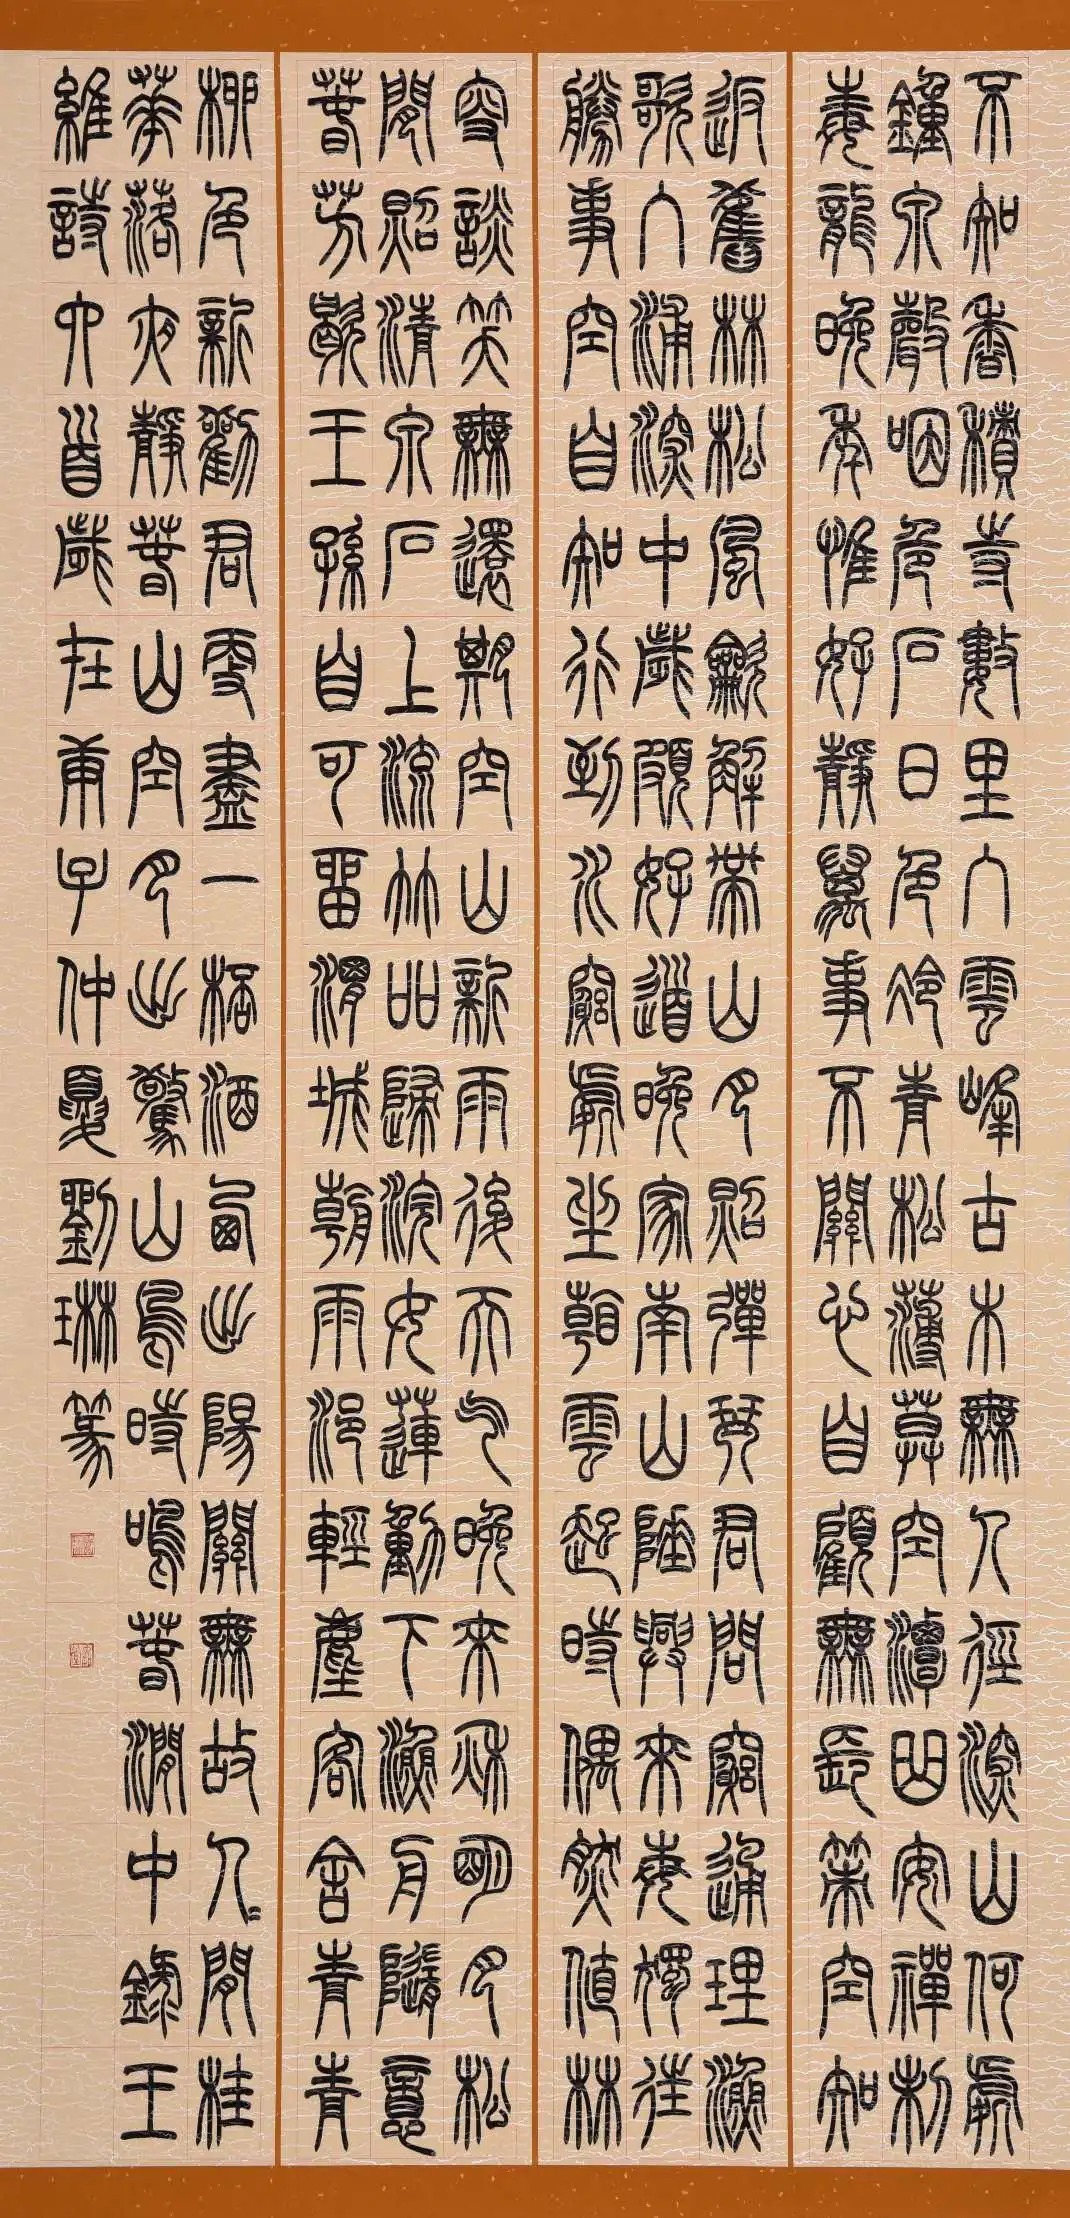 不知香積寺數里入雲峰古木無人徑深山何處
鐘泉聲咽危石日色冷青松薄暮空潭曲安禪制
毒龍晚年惟好靜萬事不關心自顧無長策空知
返舊林松風吹解帶山月照彈琴君問窮通理漁
歌入浦深中歲頗好道晚家南山陲興來每獨往
勝事空自知行到水窮處坐看雲起時偶然值林
叟談笑無還期空山新雨後天气晚來秋明月松
間照清泉石上流竹喧歸浣女蓮動下漁舟隨意
春芳歇王孫自可留渭城朝雨浥輕塵客舍青青
柳色新勸君更盡一桮酒西出陽關無故人〻閒桂
華落夜靜春山空月出驚山鳥時鳴春澗中錄王
維詩六首歲在庚子仲夏劉琳篆